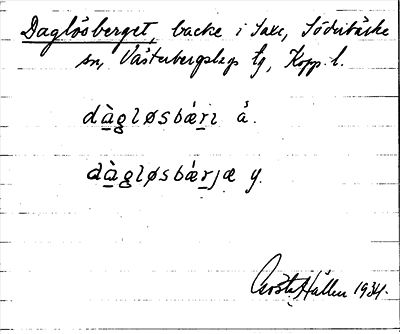 Daglösberget, backe i Saxe, Söderbärke
sn, Västerbergslags tg, Kopp. l.
dàgløsbǽrɩ å.
dàgløsbǽrjæ y.
Gösta Hallén 1934.